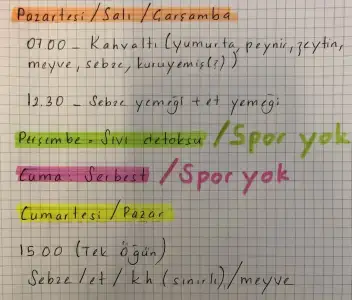 Pazartesi / Salı / Çarşamba
07.00 - Kahvaltı (yumurta, peynir, zeytin,
meyve, sebze, kuruyemiş(?))
12.30 - Sebze yemeği + et yemeği
Perşembe = Sıvı detoksu / Spor yok
Cuma: Serbest / Spor yok
Cumartesi / Pazar
15.00 (Tek Öğün)
Sebze / et / kh (sınırlı) / meyve